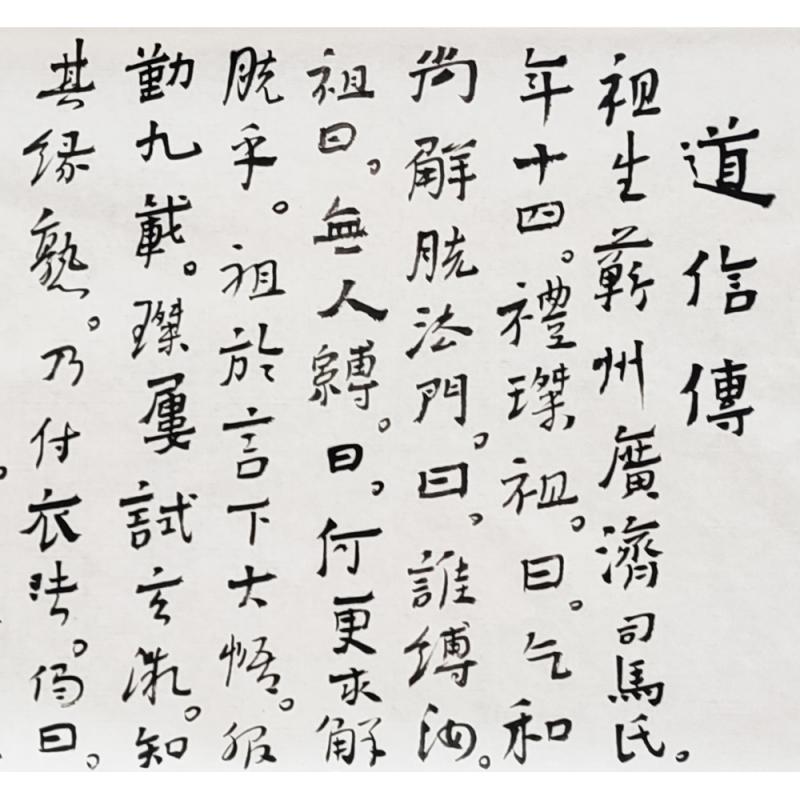 道信傳
祖生蘄州廣濟司馬氏。
年十四。禮璨祖。曰。乞和
尚解脱法門。曰。誰縛汝。
祖曰。無人縛。曰。何更求解
脱乎。祖於言下大悟。服
勤九載。璨屢試玄微。知
其緣熟。乃付衣法。偈曰。